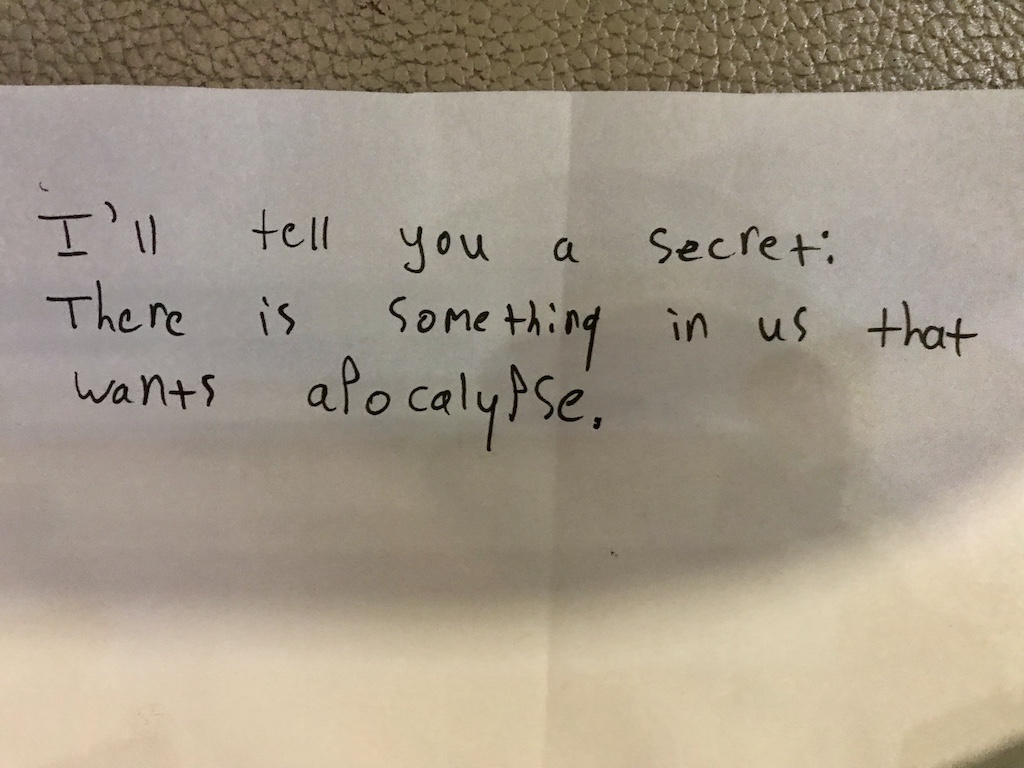 I'll tell you a secret:
There is something in us that
wants apocalypse.